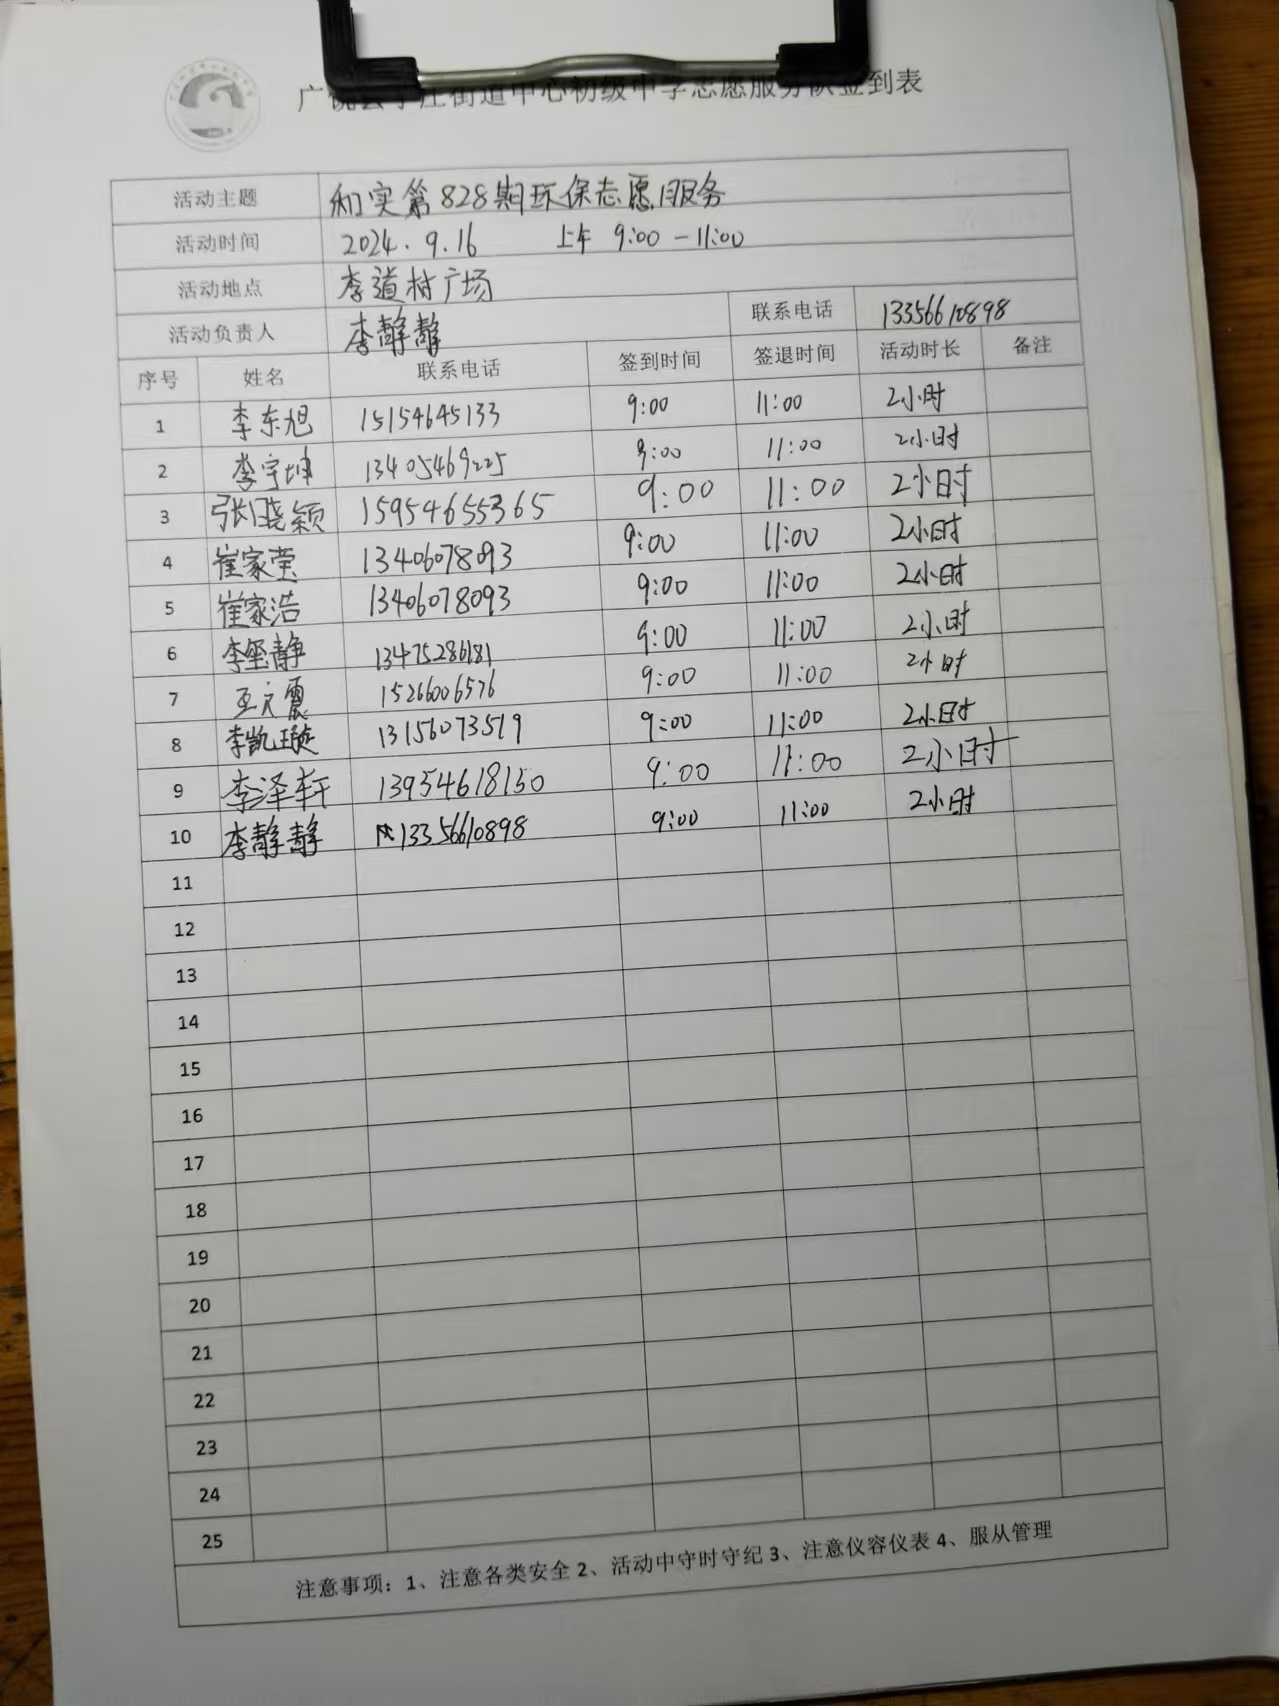 广饶县李庄街道中心初级中学志愿服务队签到表
活动主题 和实第828期环保志愿服务
活动时间 2024.9.16 上午 9:00-11:00
活动地点 李道村广场
活动负责人 李静静 联系电话 13356610898
序号 姓名 联系电话 签到时间 签退时间 活动时长 备注
1 李东旭 15154645133 9:00 11:00 2小时
2 李宇坤 13405469225 9:00 11:00 2小时
3 张晓颖 15954655365 9:00 11:00 2小时
4 崔家莹 13406078093 9:00 11:00 2小时
5 崔家浩 13406078093 9:00 11:00 2小时
6 李玺静 13475286181 9:00 11:00 2小时
7 王文震 15266006576 9:00 11:00 2小时
8 李凯璇 13156073519 9:00 11:00 2小时
9 李泽轩 13954618150 9:00 11:00 2小时
10 李静静 13356610898 9:00 11:00 2小时
11
12
13
14
15
16
17
18
19
20
21
22
23
24
25
注意事项：1、注意各类安全 2、活动中守时守纪 3、注意仪容仪表 4、服从管理